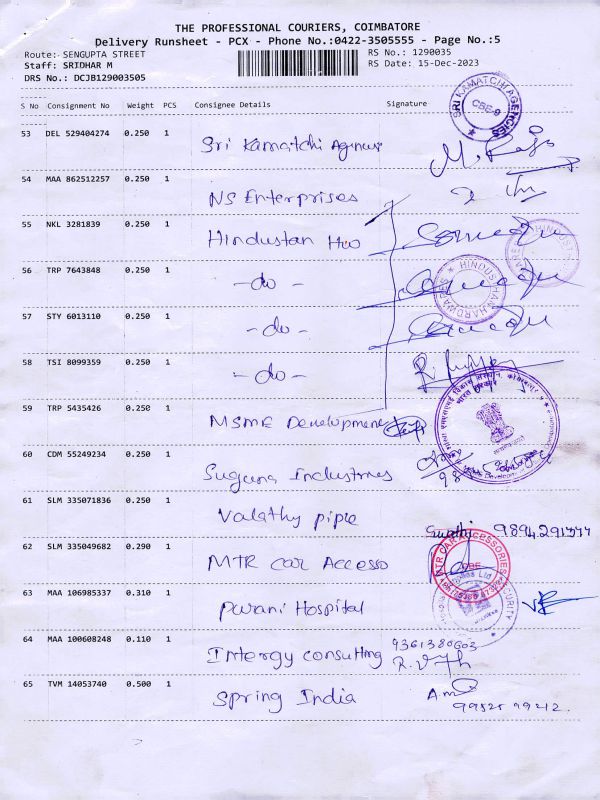 THE PROFESSIONAL COURIERS, COIMBATORE
Delivery Runsheet - PCX - Phone No.:0422-3505555 - Page No.:5
Route: SENGUPTA STREET RS No.: 1290035
Staff: SRIDHAR M RS Date: 15-Dec-2023
DRS No.: DCJB129003505
S No Consignment No Weight PCS Consignee Details Signature
SRI KAMATCHI AGENCIES CBE-9
53 DEL 529404274 0.250 1 Sri Kamatchi
54 MAA 862512257 0.250 1 NS Enterprises
55 NKL 3281839 0.250 1 Hindustan
56 TRP 7643848 0.250 1 -do-
HINDUSTAN HARDWARES
57 STY 6013110 0.250 1 -do-
58 TSI 8099359 0.250 1 -do-
59 TRP 5435426 0.250 1 MSME Development
60 CDM 55249234 0.250 1 Suguna Industries
61 SLM 335071836 0.250 1 Valathy pipe
Swathi
62 SLM 335049682 0.290 1 MTR car Accesso
MTR CAR ACCESSORIES
63 MAA 106985337 0.310 1 Purani Hospital
SECURITY
64 MAA 100608248 0.110 1 Intergy consulting 9361380603
65 TVM 14053740 0.500 1 Spring India